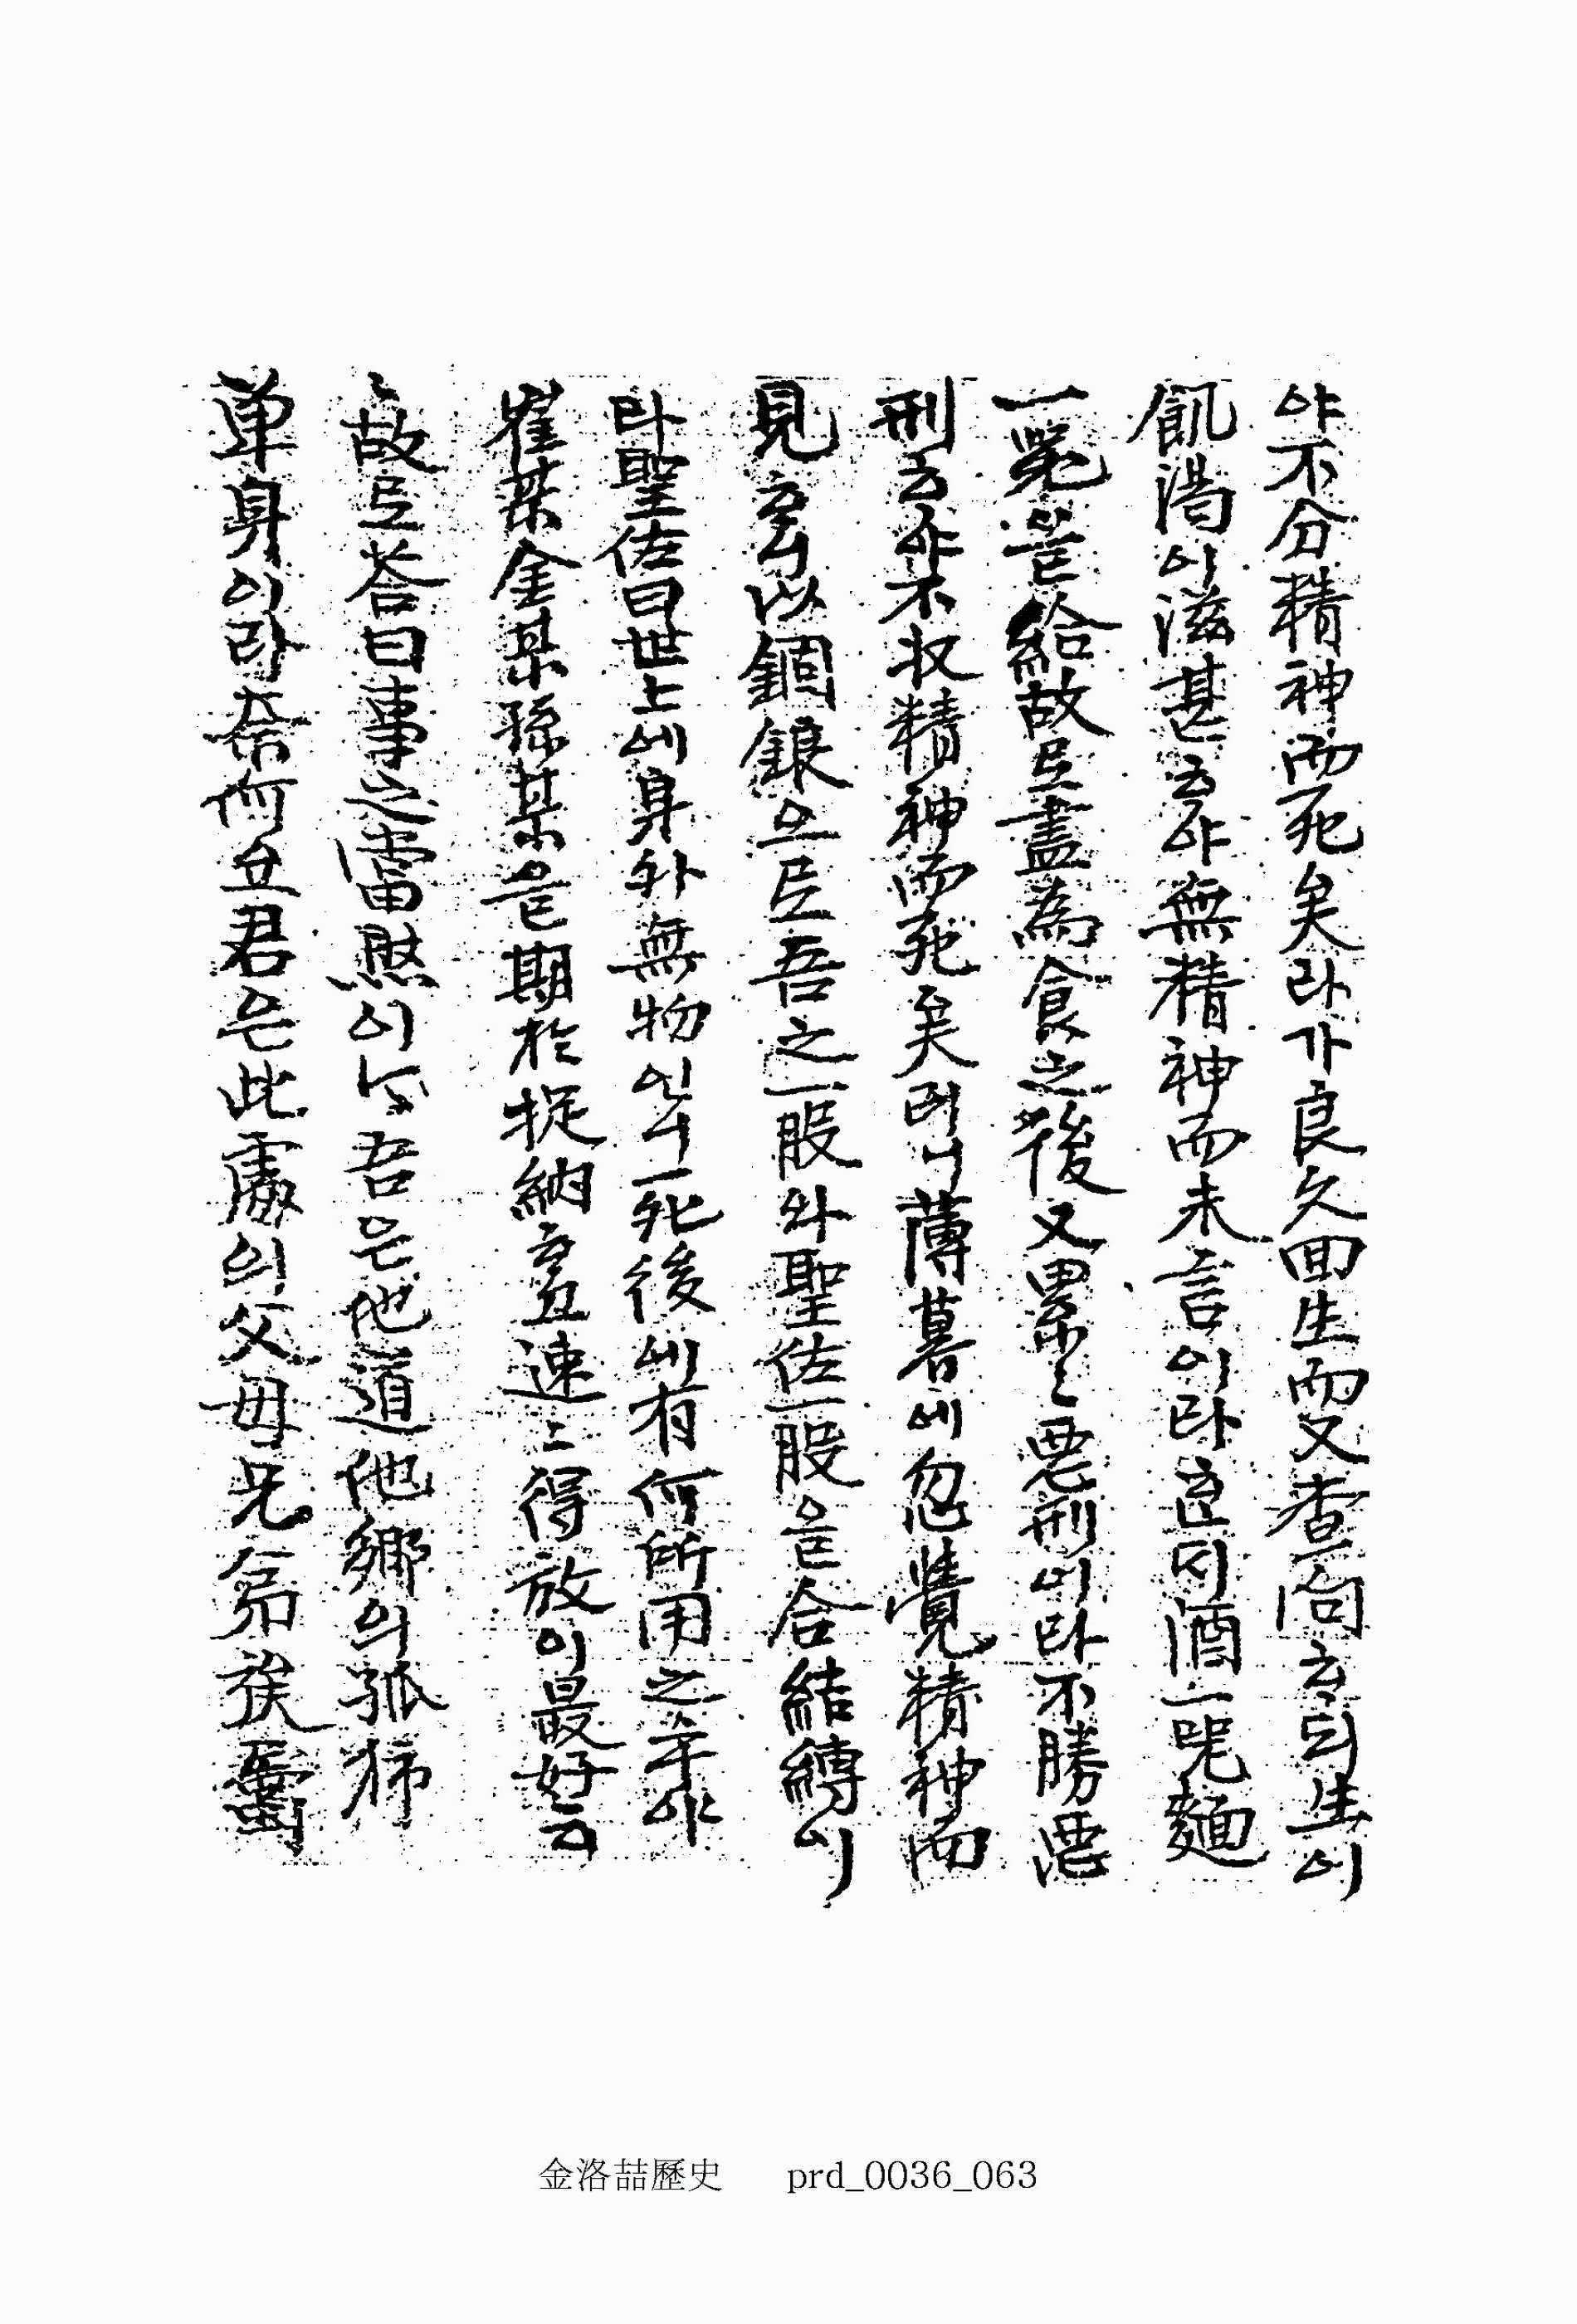 야不分精神而死矣라가良久回生而又査問호되生이
飢渴이滋甚호야無精神而未言이라한되酒一咒麵
一咒을給故로盡為食之後又累々悪刑이라不勝悪
刑호야不收精神而死矣러니薄暮에忽覺精神而
見호니以錮鋃으로吾之一股와聖佐一股을合結縛이
라聖佐曰世上에身外無物인니一死後에有何所用之乎아
崔某金某孫某을期於捉納호고速々得放이最好云
々故로答曰事之當然이나吾은他道他鄉의孤孑
单身이라奈何오君은此處의父母兄弟族屬